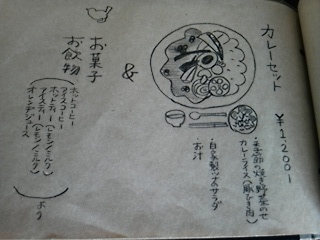 カレーセット
¥1,200-
・季節の焼き野菜のせ
カレーライス(豚ひき肉)
・自家製ツナのサラダ
・お汁
&
お菓子
お飲物
ホットコーヒー
アイスコーヒー
ホットティー(レモン/ミルク)
アイスティー(レモン/ミルク)
オレンジジュース
より